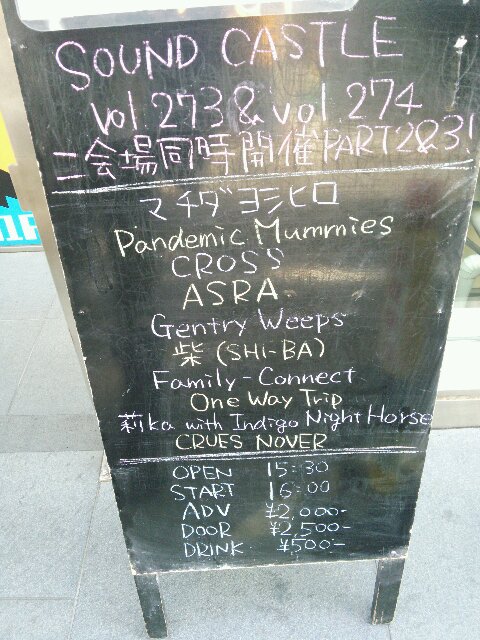 SOUND CASTLE
vol.273 & vol.274
二会場同時開催 PART2&3!
マチダヨシヒロ
Pandemic Mummies
CROSS
ASRA
Gentry Weeps
柴 (SHI-BA)
Family-Connect
One Way Trip
莉ka with Indigo Night Horse
CRUES NOVER
OPEN 15:30
START 16:00
ADV ¥2,000-
DOOR ¥2,500-
DRINK ¥500-